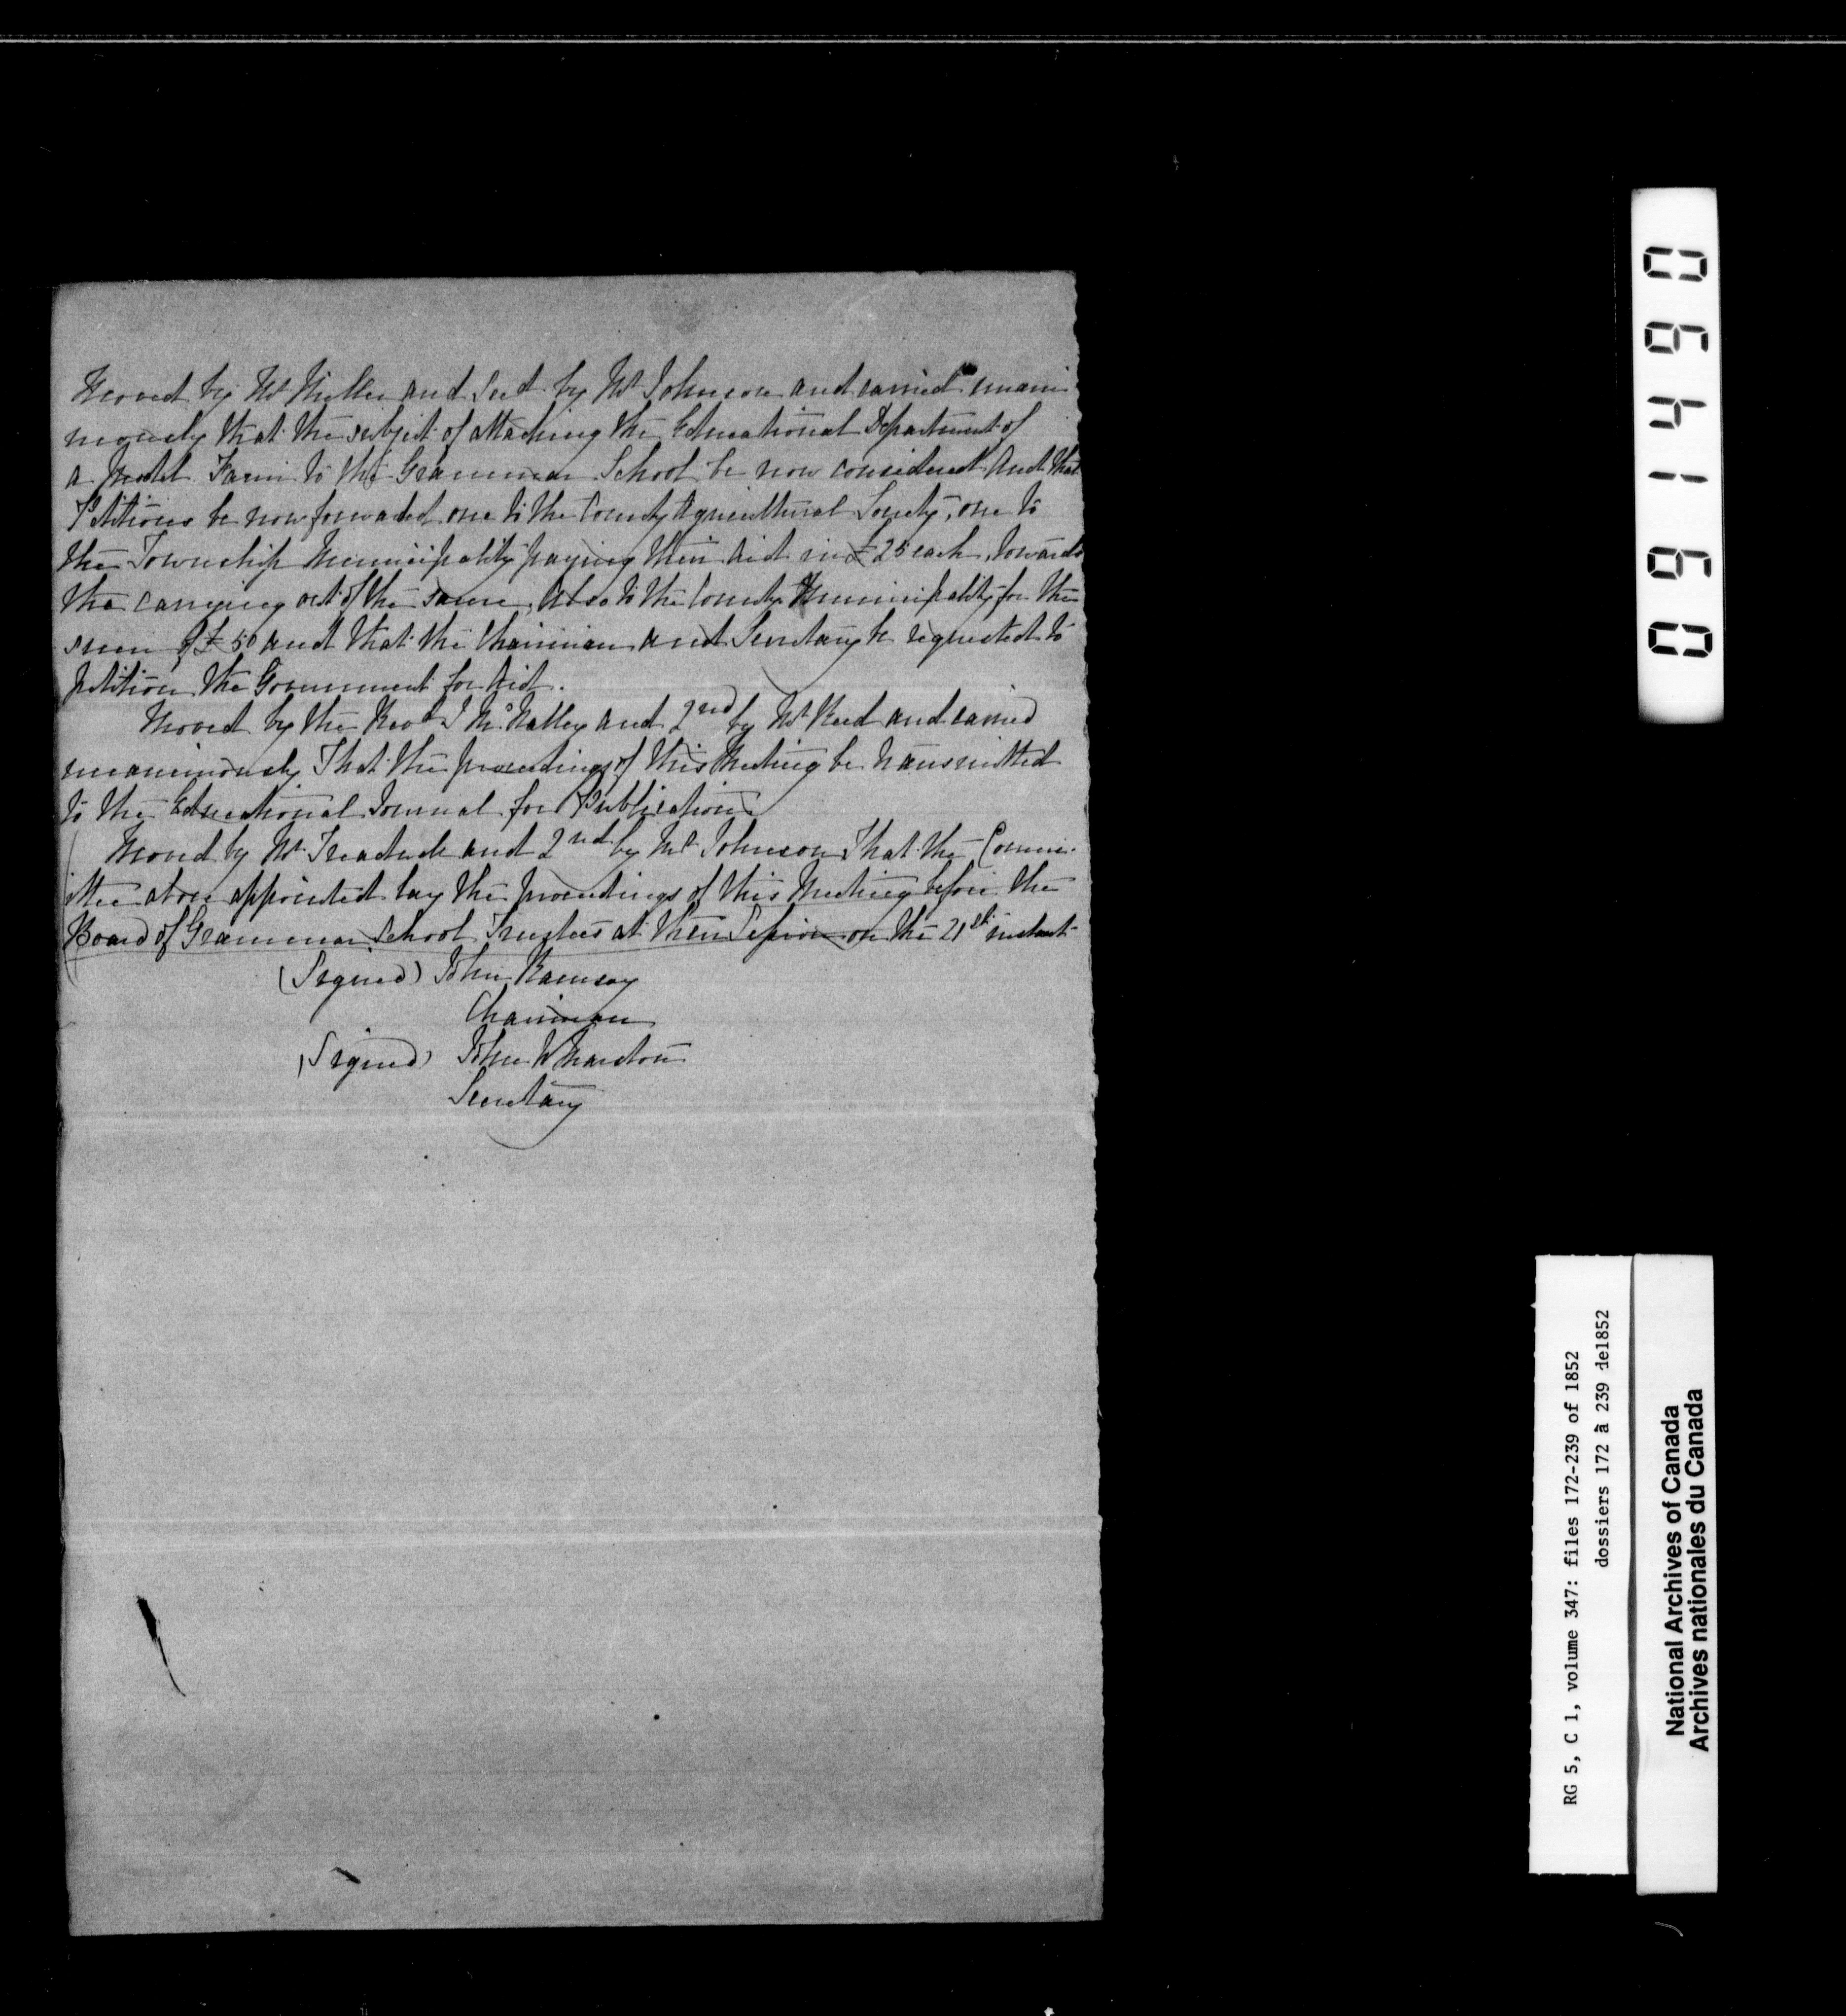 Moved by Mr Miller and Secd by Mr Johnson and carried unani
mously that the subject of attaching the Educational Department of
a Model Farm to the Grammar School be now considered And that
Petitions be now forwarded one to the County Agricultural Society, one to
the Township Municipality praying their Aid in £25 each, towards
the carrying out of the same, Also to the County Municipality for the
sum of £50 and that the Chairman and Secretary be requested to
petition the Government for Aid.
Moved by the Revd J McNalley and 2nd by Mr Reed and carried
unanimously That the proceedings of this Meeting be transmitted
to the Educational Journal for Publication
Moved by Mr and 2nd by Mr Johnson That the Comm-
ittee above appointed lay the proceedings of this Meeting before the
Board of Grammar School Trustees at their Session on the 21st instant
(Signed) John Ramsay
Chairman
(Signed) John Wharton
Secretary
0 9 6 1 4 6 9 0
RG 5, C 1, volume 347: files 172-239 of 1852
dossiers 172 à 239 de1852
National Archives of Canada
Archives nationales du Canada